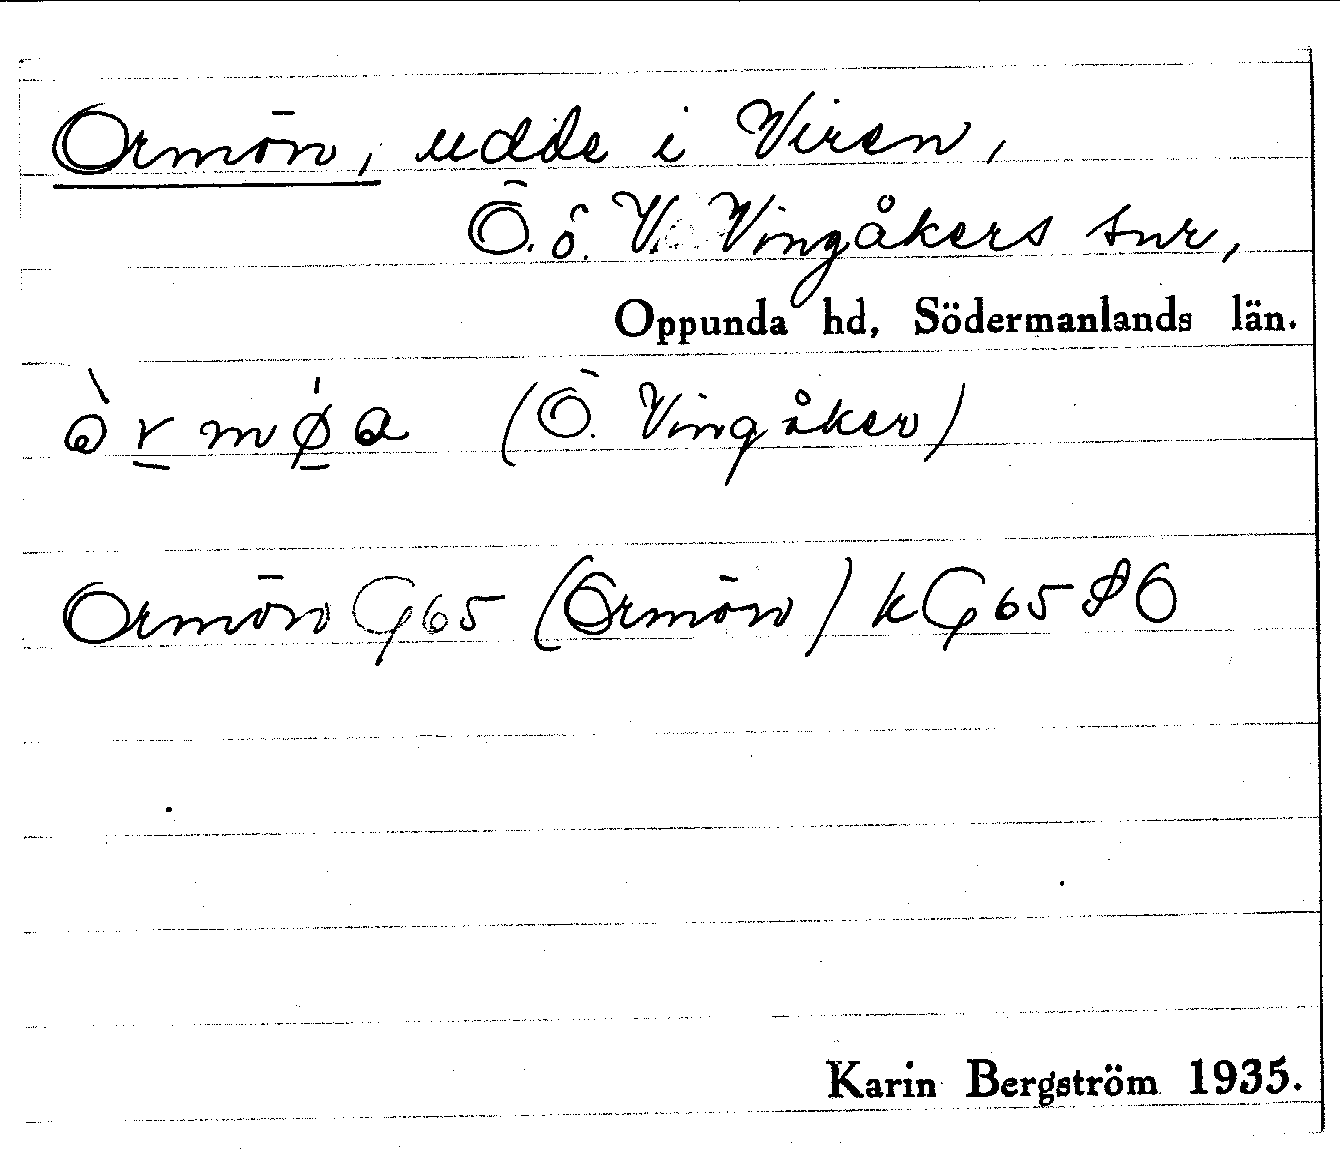 Ormön, udde i Viren,
Ö. o. V. Vingåkers snr,
Oppunda hd, Södermanlands län.
(Ö. Vingåker)
Ormön G65 (Ormön) kG65 SO
Karin Bergström 1935.